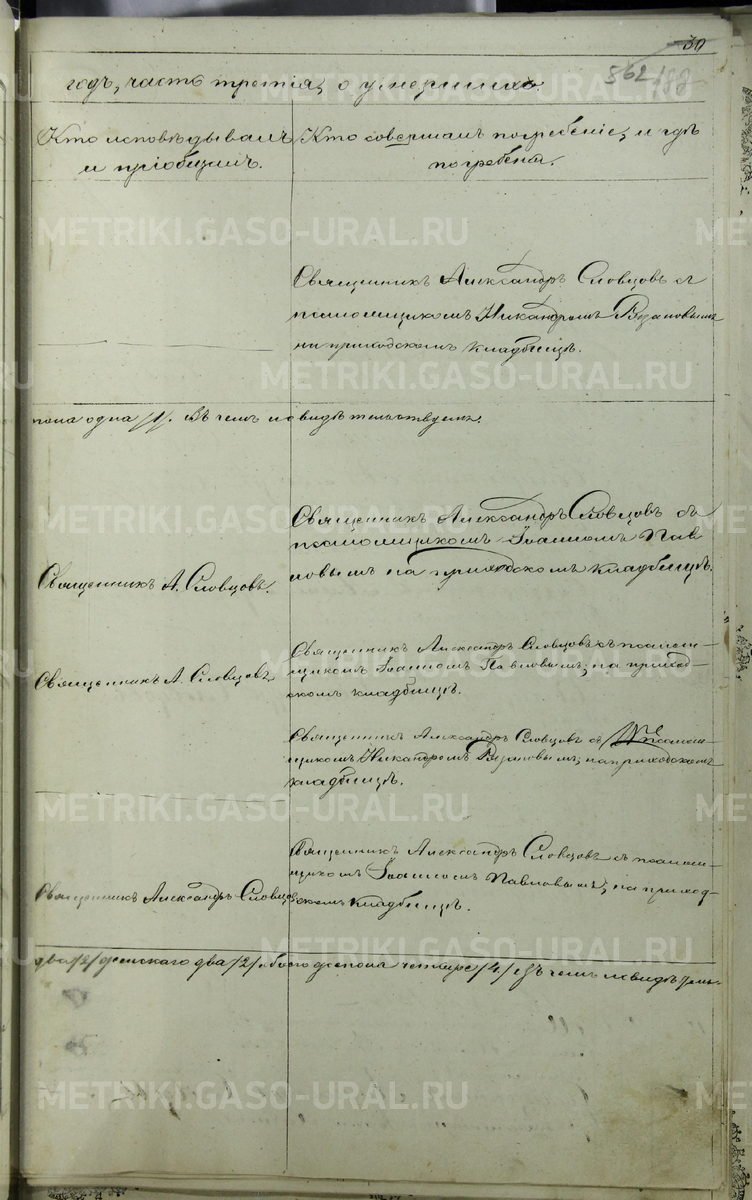 30
562/188
годъ, часть третія, о умершихъ.
Кто исповѣдывалъ
и пріобщалъ.
Кто совершалъ погребеніе, и гдѣ
погребены.
Священникъ Александръ Словцовъ съ
псаломщикомъ Никандромъ
на приходскомъ кладбищѣ.
пола одна /1/. Въ чемъ и свидѣтельствуемъ.
Священникъ Александръ Словцовъ съ
псаломщикомъ Іоанномъ Пав-
ловымъ на приходскомъ кладбищѣ.
Священникъ А. Словцовъ.
Священникъ Александръ Словцовъ съ псалом-
щикомъ Іоанномъ Павловымъ, на приход-
скомъ кладбищѣ.
Священникъ А. Словцовъ
Священникъ Александръ Словцовъ съ псалом-
щикомъ Никандромъ на приходскомъ
кладбищѣ.
Священникъ Александръ Словцовъ съ псалом-
щикомъ Іоанномъ Павловымъ, на приход-
скомъ кладбищѣ.
Священникъ Александръ Словцовъ
два /2/ женскаго два /2/ обоего пола четыре /4/ Въ чемъ и свидѣтель-
METRIKI.GASO-URAL.RU